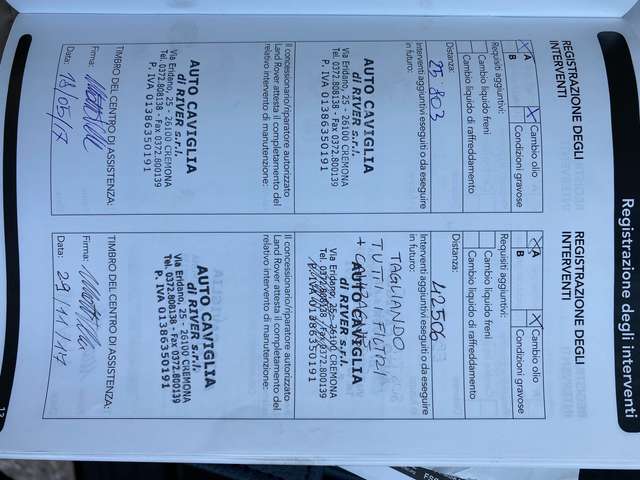 Registrazione degli interventi
REGISTRAZIONE DEGLI
INTERVENTI
X A
X Cambio olio
B
Condizioni gravose
Requisiti aggiuntivi:
Cambio liquido freni
Cambio liquido di raffreddamento
Distanza:
25.803
Interventi aggiuntivi eseguiti o da eseguire
in futuro:
AUTO CAVIGLIA
di RIVER s.r.l.
Via Eridano, 25 - 26100 CREMONA
Tel. 0372.808138 - Fax 0372.800139
P. IVA 01386350191
Il concessionario/riparatore autorizzato
Land Rover attesta il completamento del
relativo intervento di manutenzione:
AUTO CAVIGLIA
di RIVER s.r.l.
Via Eridano, 25 - 26100 CREMONA
Tel. 0372.808138 - Fax 0372.800139
P. IVA 01386350191
TIMBRO DEL CENTRO DI ASSISTENZA:
Firma:
Data: 18/05/17
REGISTRAZIONE DEGLI
INTERVENTI
X A
X Cambio olio
B
Condizioni gravose
Requisiti aggiuntivi:
Cambio liquido freni
Cambio liquido di raffreddamento
Distanza:
42506
Interventi aggiuntivi eseguiti o da eseguire
in futuro:
TAGLIANDO
TUTTI I FILTRI
+
AUTO CAVIGLIA
di RIVER s.r.l.
Via Eridano, 25 - 26100 CREMONA
Tel. 0372.808138 - Fax 0372.800139
P. IVA 01386350191
Il concessionario/riparatore autorizzato
Land Rover attesta il completamento del
relativo intervento di manutenzione:
AUTO CAVIGLIA
di RIVER s.r.l.
Via Eridano, 25 - 26100 CREMONA
Tel. 0372.808138 - Fax 0372.800139
P. IVA 01386350191
TIMBRO DEL CENTRO DI ASSISTENZA:
Firma:
Data: 29/11/17
13